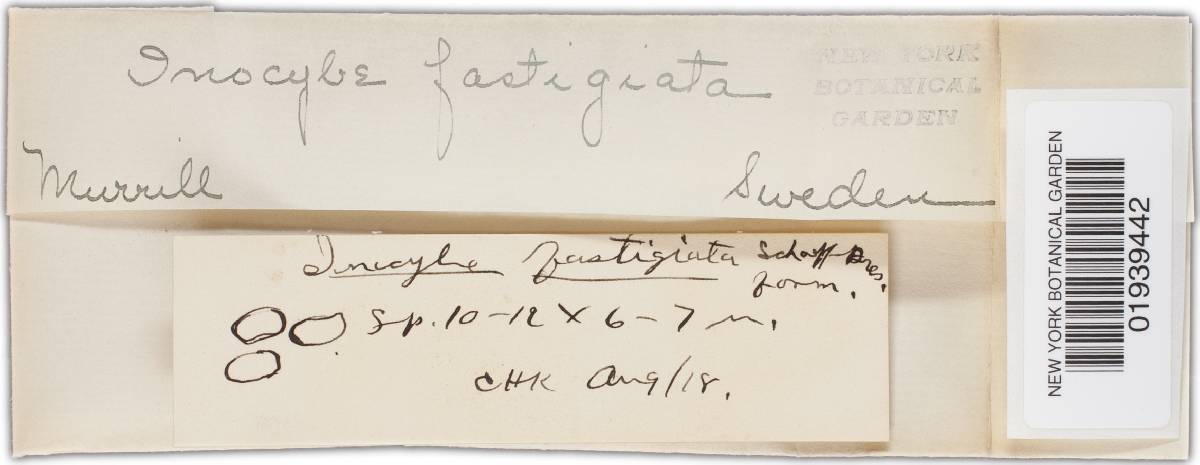 Inocybe fastigiata
NEW YORK
BOTANICAL
GARDEN
Murrill
Sweden
Inocybe fastigiata Schaeff Bres.
form.
Sp. 10-12 X 6-7 m.
CHK Aug/18.
NEW YORK BOTANICAL GARDEN
01939442